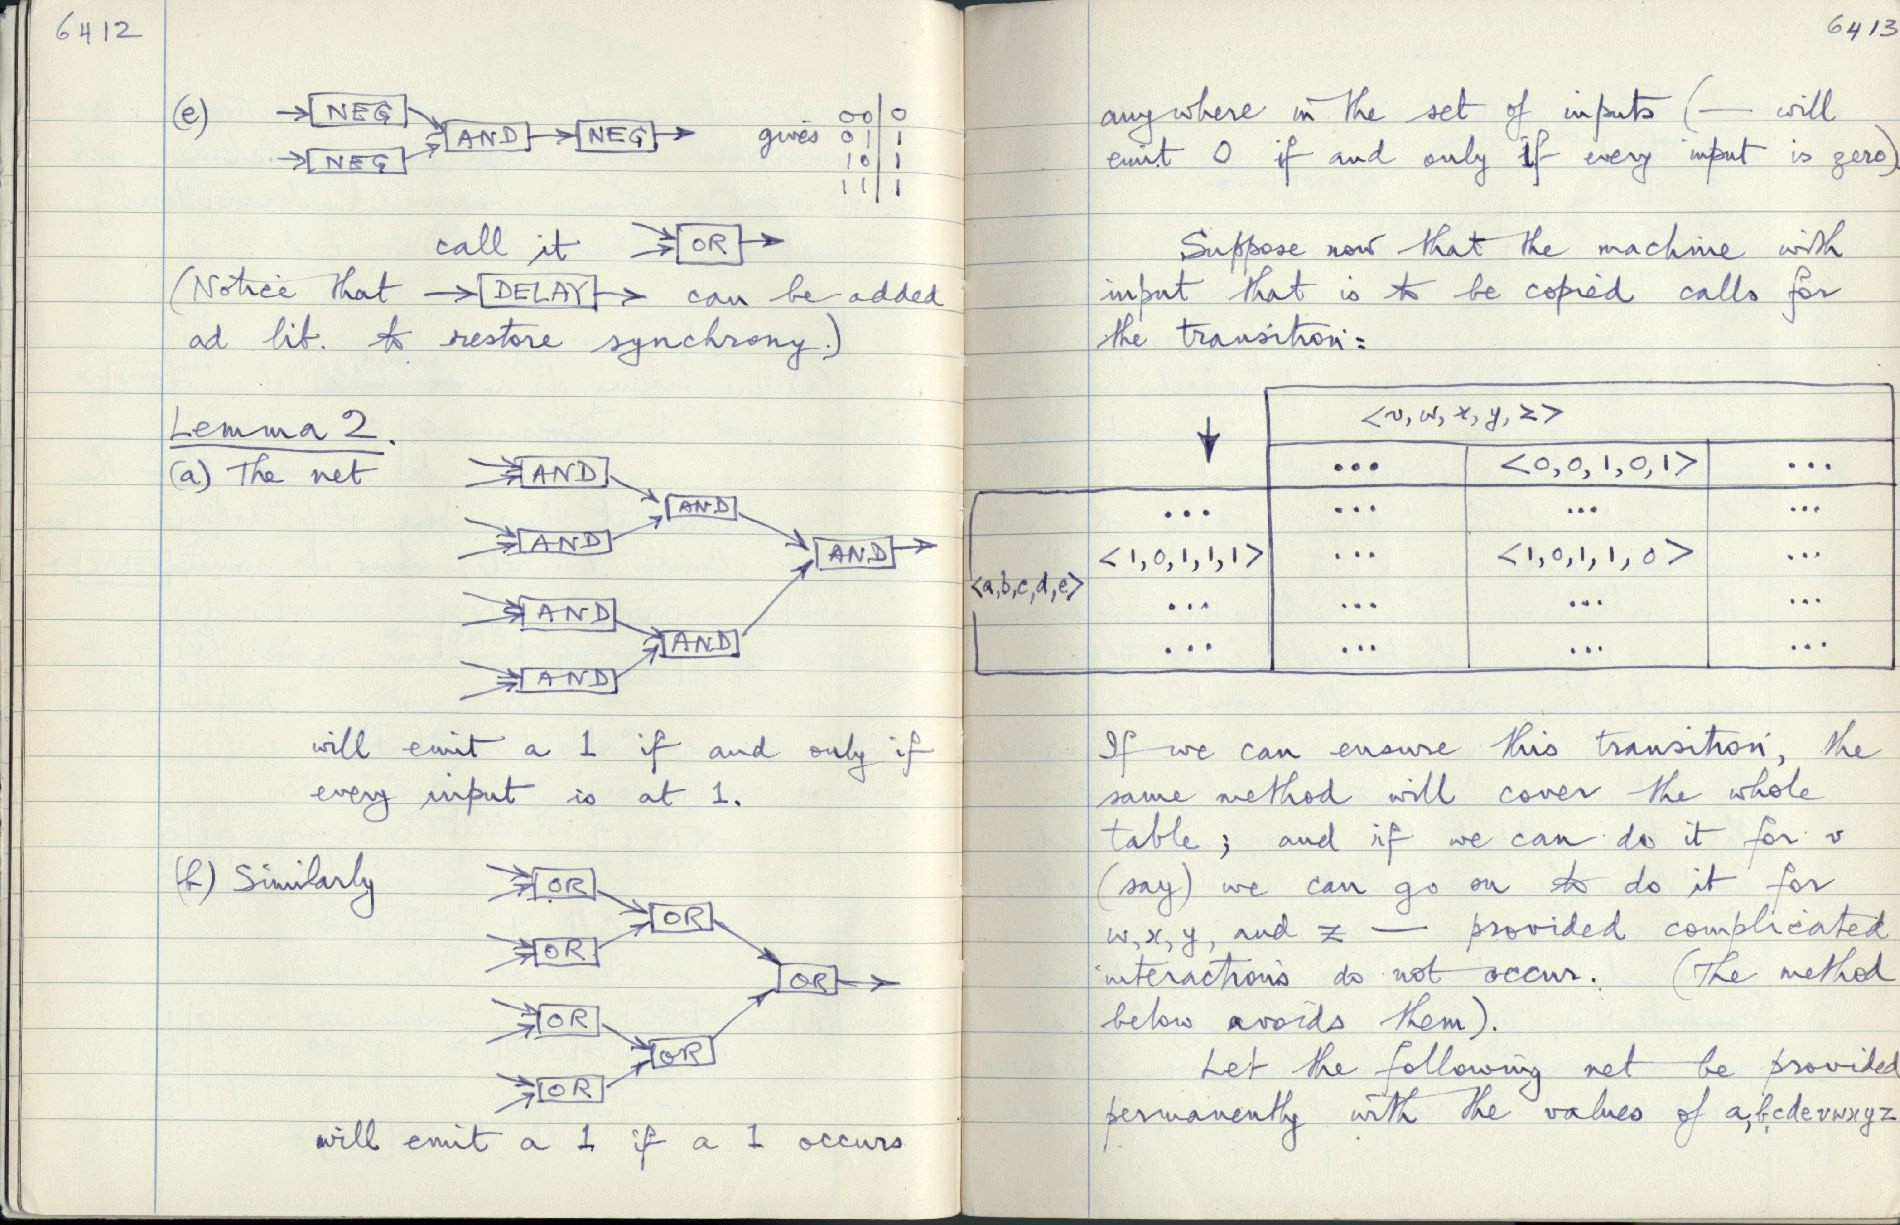 6412
(e) → NEG
→ NEG → AND → NEG → gives
00 | 0
01 | 1
10 | 1
11 | 1
call it → OR →
(Notice that → DELAY → can be added
ad lib. to restore synchrony.)
Lemma 2.
(a) The net
AND
AND
AND
AND
AND
AND
AND
will emit a 1 if and only if
every input is at 1.
(b) Similarly
OR
OR
OR
OR
OR
OR
OR
will emit a 1 if a 1 occurs
6413
anywhere in the set of inputs (— will
emit 0 if and only if every input is zero)
Suppose now that the machine with
input that is to be copied calls for
the transition:
<v, w, x, y, z>
↓ ... <0,0,1,0,1> ...
... ... ... ...
<a,b,c,d,e> <1,0,1,1,1> ... <1,0,1,1,0> ...
... ... ... ...
... ... ... ...
If we can ensure this transition, the
same method will cover the whole
table; and if we can do it for v
(say) we can go on to do it for
w, x, y, and z — provided complicated
interactions do not occur. (The method
below avoids them).
Let the following net be provided
permanently with the values of a,b,cdevwxyz